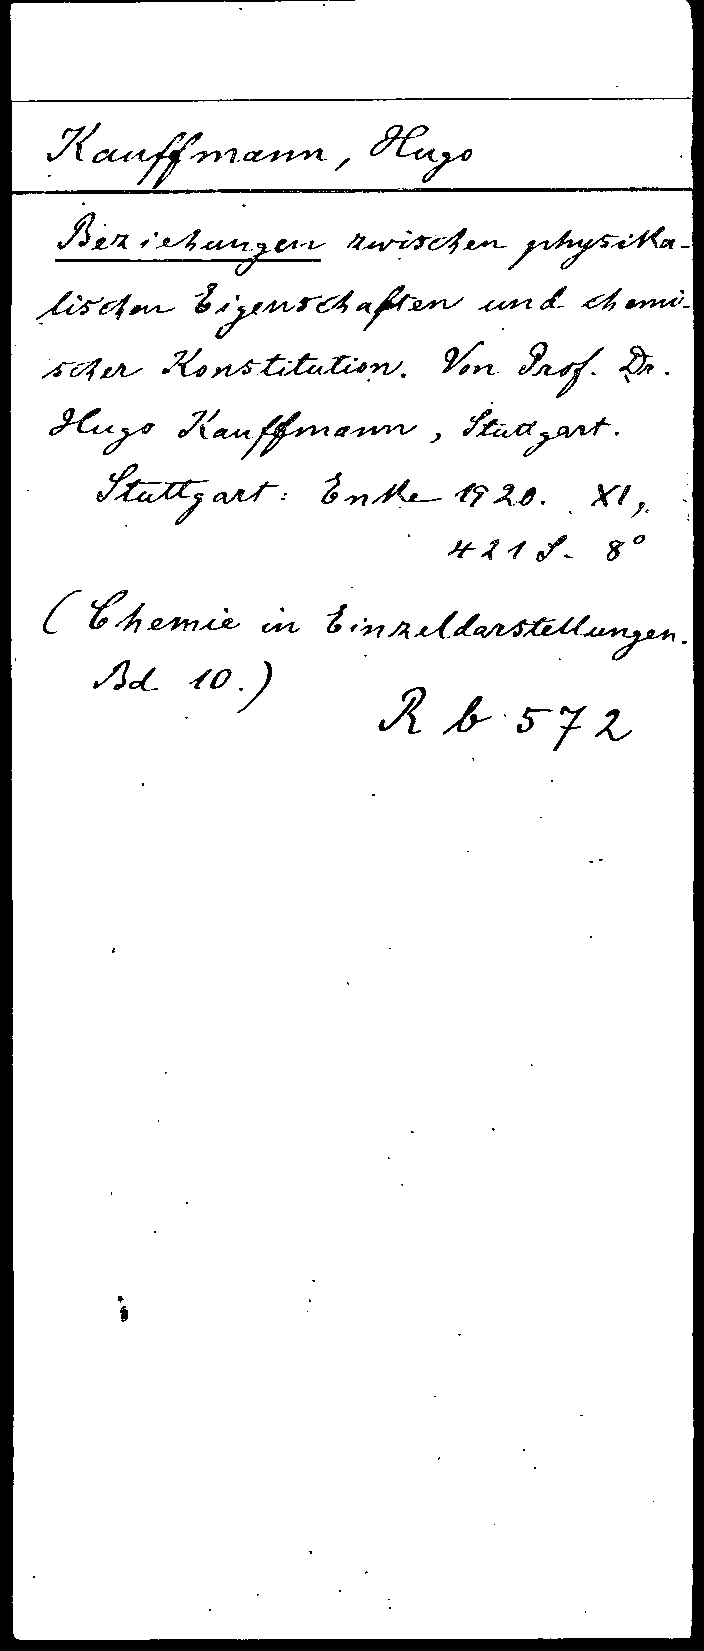 Kauffmann, Hugo
Beziehungen zwischen physika-
lischen Eigenschaften und chemi-
scher Konstitution. Von Prof. Dr.
Hugo Kauffmann, Stuttgart.
Stuttgart: Enke 1920. XI,
421 S. 8°
(Chemie in Einzeldarstellungen.
Bd 10.)
R b 572